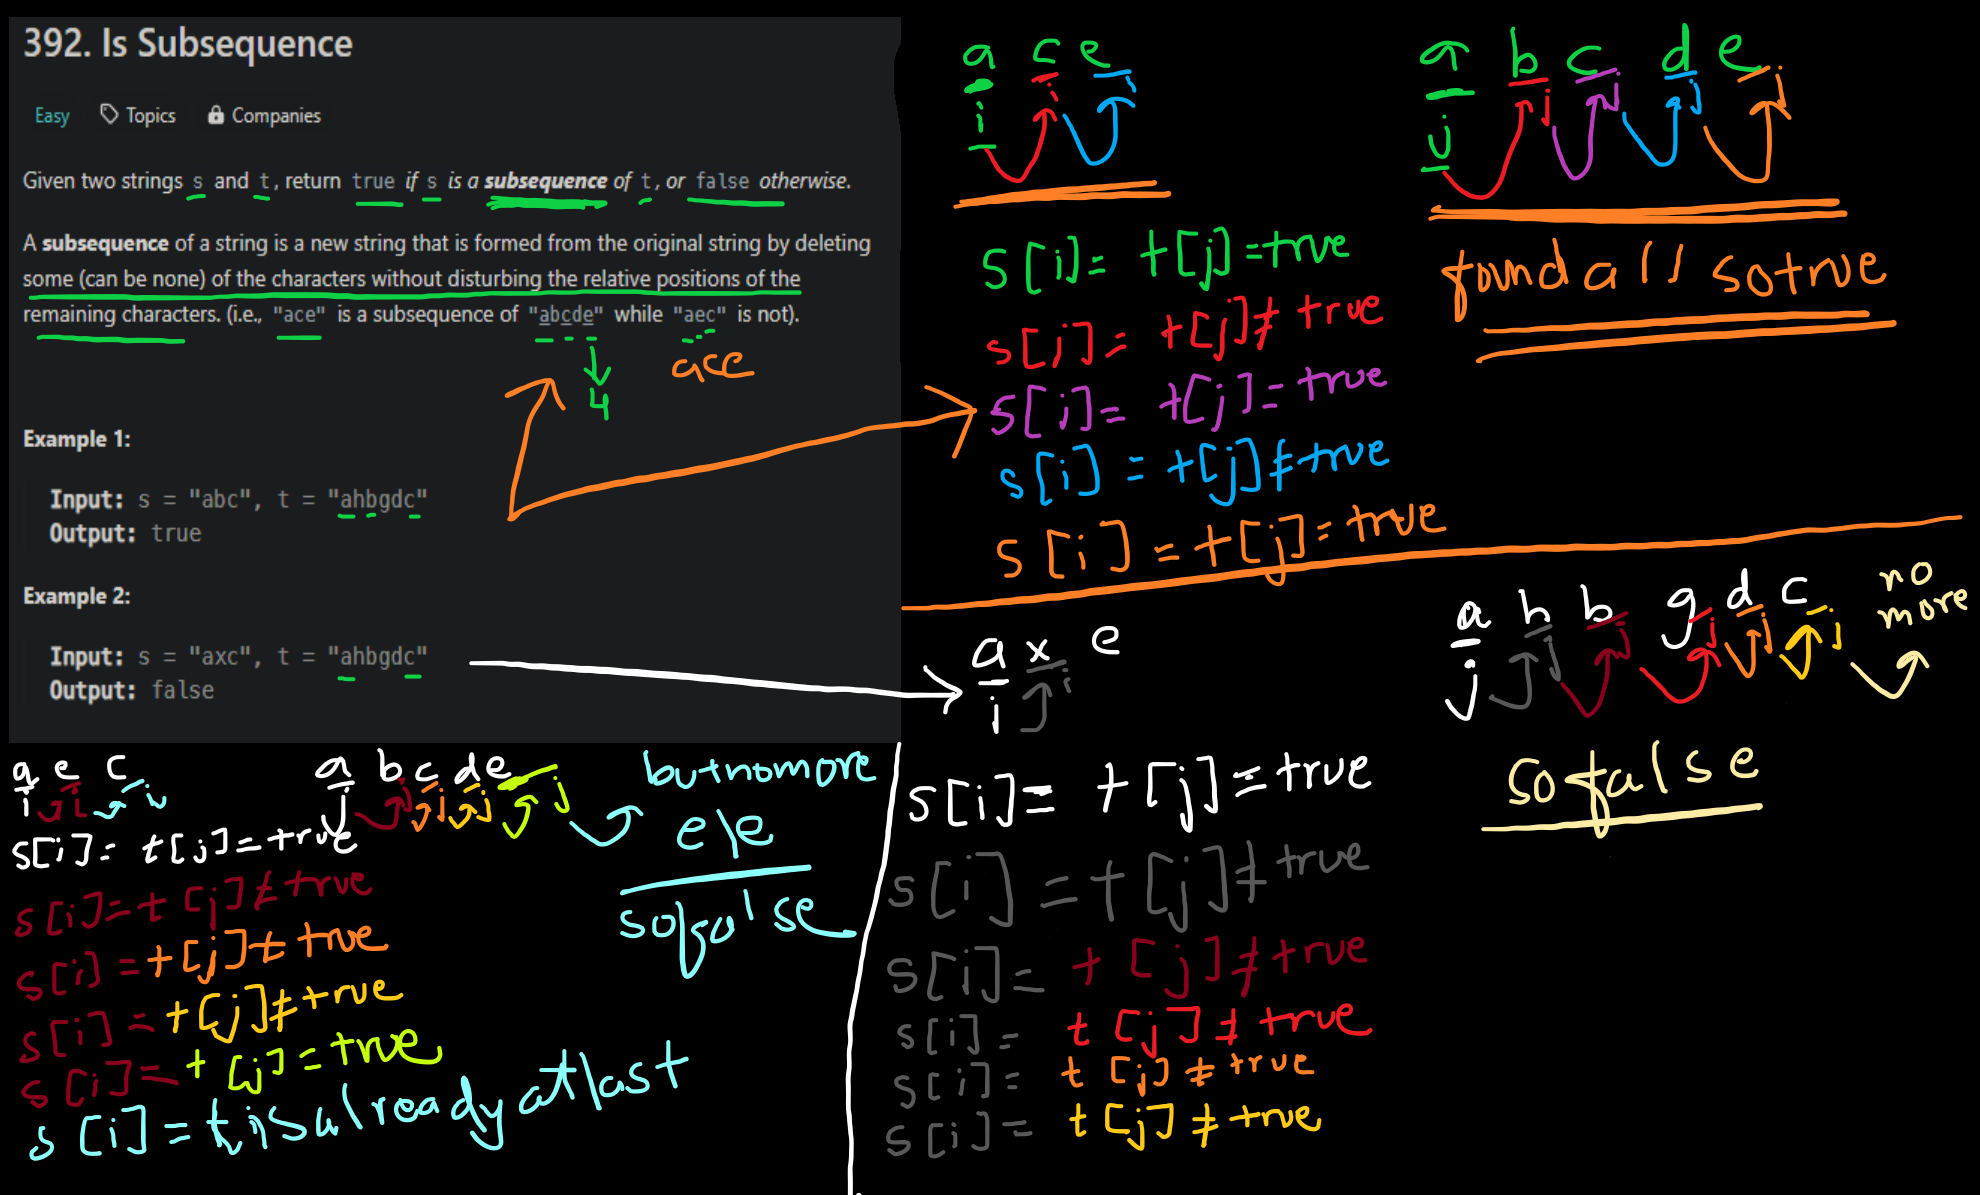 392. Is Subsequence
Easy Topics Companies
Given two strings s and t, return true if s is a subsequence of t, or false otherwise.
A subsequence of a string is a new string that is formed from the original string by deleting
some (can be none) of the characters without disturbing the relative positions of the
remaining characters. (i.e., "ace" is a subsequence of "abcde" while "aec" is not).
4
ace
Example 1:
Input: s = "abc", t = "ahbgdc"
Output: true
Example 2:
Input: s = "axc", t = "ahbgdc"
Output: false
a c e
i i i
a b c d e
j j j j j
s[i]= t[j]=true
s[i]= t[j]≠ true
s[i]= t[j]= true
s[i] = t[j]≠true
s[i] = t[j]=true
found all so true
a x e
i i
a h b g d c
no
more
j j j j j j
s[i]= t[j]=true
s[i]=t[j]≠true
s[i]= t[j]≠true
s[i]= t[j]≠true
s[i]= t[j]≠true
s[i]= t[j]≠true
so false
a e c
i i i
a b c d e
j j j j j
s[i]= t[j]=true
s[i]=t[j]≠true
s[i]=t[j]≠true
s[i]=t[j]≠true
s[i]=t[j]=true
s[i]=t is already at last
but no more
ele
so false